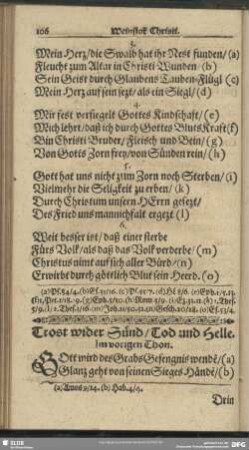 106 Weinstok Christi.
3.
Mein Herz/die Swalb hat ihr Nest funden/(a)
Fleucht zum Altar in Christi Wunden (b)
Sein Geist durch Glaubens Tauben-Flügl (c)
Mein Herz auf sein sezt/als ein Siegl/(d)
4.
Mir fest versiegelt Gottes Kindschaft/(e)
Mich lehrt/daß ich durch Gottes Bluts Kraft(f)
Bin Christi Bruder/Fleisch und Bein/(g)
Von Gotts Zorn frey/von Sünden rein/(h)
5.
Gott hat uns nicht zum Zorn noch Sterben/(i)
Vielmehr die Seligkeit zu erben/(k)
Durch Christum unsern HErrn gesezt/
Des Fried uns mannichfalt ergezt (l)
6.
Weit besser ist/daß einer sterbe
Fürs Volk/als daß das Volk verderbe/(m)
Christus nimt auf sich aller Bürd/(n)
Erwirbt durch göttlich Blut sein Heerd.(o)
Trost wider Sünd/Tod und Helle.
Im vorigen Thon.
GOtt wird des Grabs Gefengnis wende/(a)
Glanz geht von seinen Sieges Hände/(b)
Drin